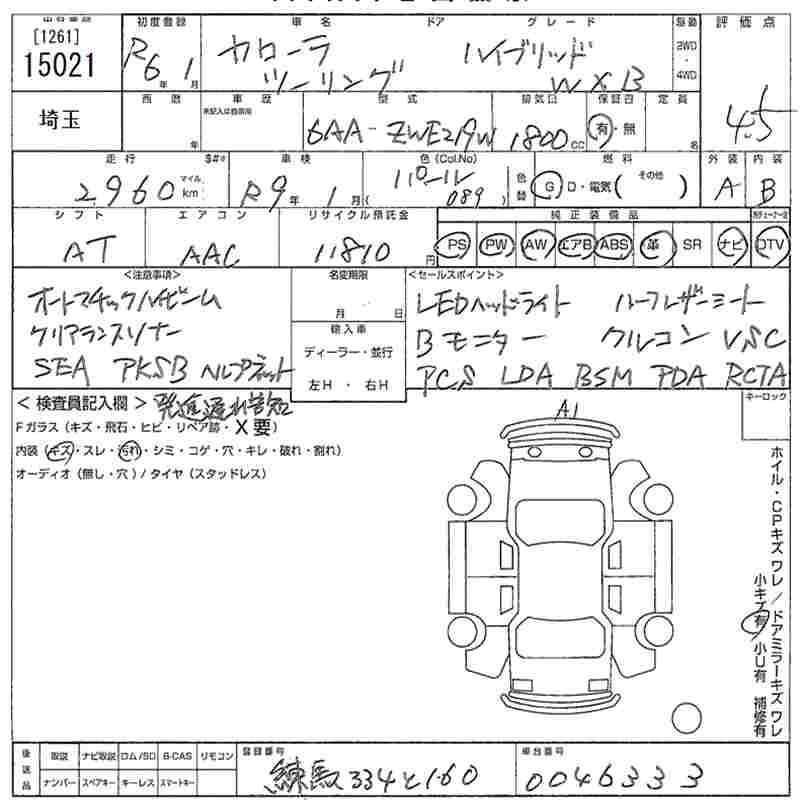 [1261]
15021
埼玉
初度登録
R6年 1月
車名
カローラ
ツーリング
ドア
グレード
ハイブリッド
WXB
駆動
2WD
・
4WD
評価点
4.5
西暦
年
車歴
未記入は自家用
型式
6AA-ZWE219W
排気口
1800cc
保証書
有・無
定員
名
走行
2,960
マイル
km
車検
R9年 1月
色(Col.No)
パール
(089)
色替
燃料
G D・電気( その他 )
外装
A
内装
B
シフト
AT
エアコン
AAC
リサイクル預託金
11810円
純正装備品
PS PW AW エアB ABS 革 SR ナビ DTV
<注意事項>
オートマチックハイビーム
クリアランスソナー
SEA PKSB ヘルプネット
発進遅れ告知
名変期限
月 日
輸入車
ディーラー・並行
左H ・ 右H
<セールスポイント>
LEDヘッドライト ハーフレザーシート
Bモニター クルコン VSC
PCS LDA BSM PDA RCTA
<検査員記入欄>
Fガラス(キズ・飛石・ヒビ・リペア跡・X要)
内装(キズ・スレ・汚れ・シミ・コゲ・穴・キレ・破れ・割れ)
オーディオ(無し・穴)/タイヤ(スタッドレス)
A1
キーロック
ホイル・CPキズ ワレ / ドアミラーキズ ワレ
小キズ有 小U有 補修有
後送品
取説 ナビ取説 ロム/SD B-CAS リモコン
ナンバー スペアキー キーレス スマートキー
登録番号
練馬334と160
車台番号
0046333